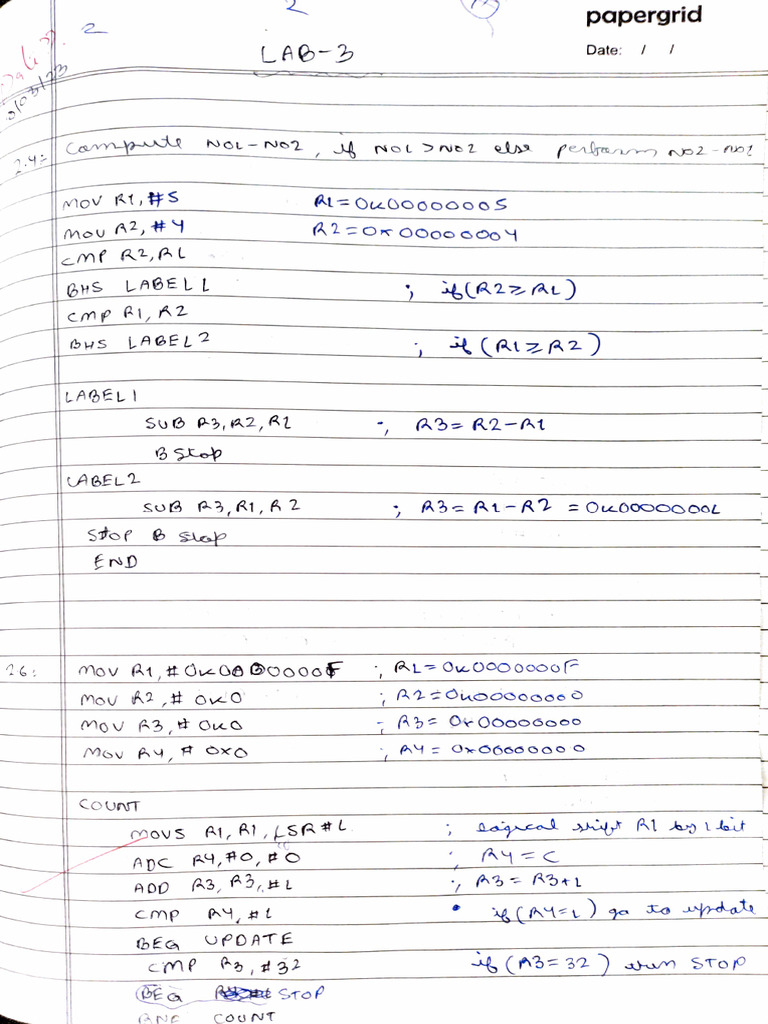 2
2
papergrid
LAB-3
Date: / /
2.4: Compute NO1-NO2, if NO1 > NO2 else perform NO2-NO1
MOV R1, #5 R1=0x00000005
MOV R2, #4 R2=0x00000004
CMP R2, R1
BHS LABEL1 ; if(R2≥R1)
CMP R1, R2
BHS LABEL2 ; if (R1≥R2)
LABEL1
SUB R3, R2, R1 ; R3=R2-R1
B Stop
LABEL2
SUB R3, R1, R2 ; R3=R1-R2 = 0x00000001
Stop B Stop
END
26: MOV R1, #0x0000000F ; R1=0x0000000F
MOV R2, #0x0 ; R2=0x00000000
MOV R3, #0x0 ; R3=0x00000000
MOV R4, #0x0 ; R4=0x00000000
COUNT
MOVS R1, R1, LSR #1 ; Logical shift R1 by 1 bit
ADC R4, #0, #0 ; R4=C
ADD R3, R3, #1 ; R3=R3+1
CMP R4, #1 • if(R4=1) go to update
BEQ UPDATE
CMP R3, #32 if (R3=32) then STOP
BEQ STOP
BNE COUNT